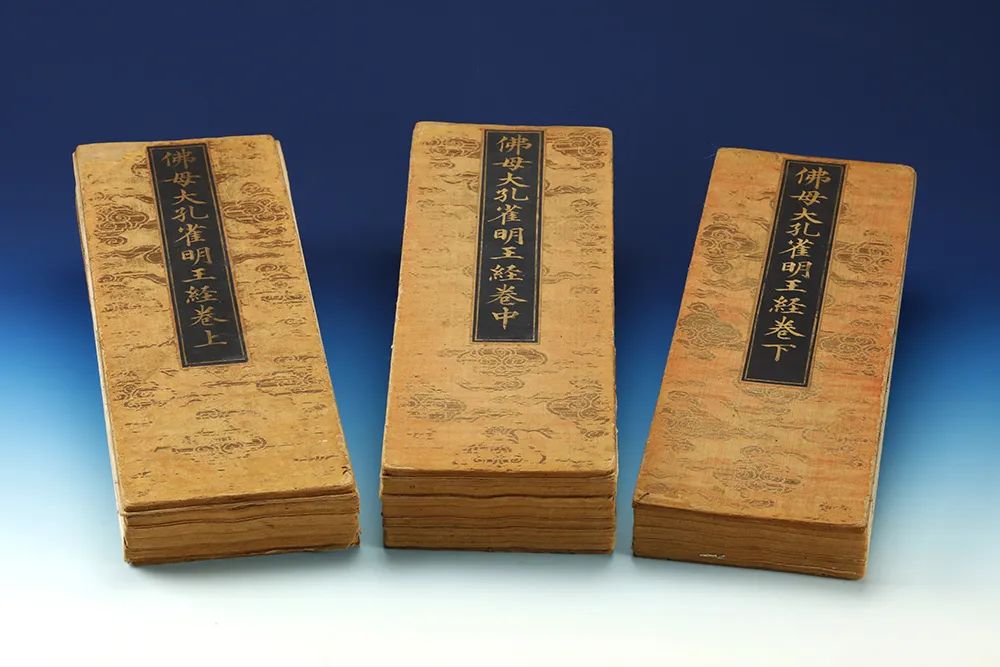 佛母大孔雀明王経卷上
佛母大孔雀明王経卷中
佛母大孔雀明王経卷下